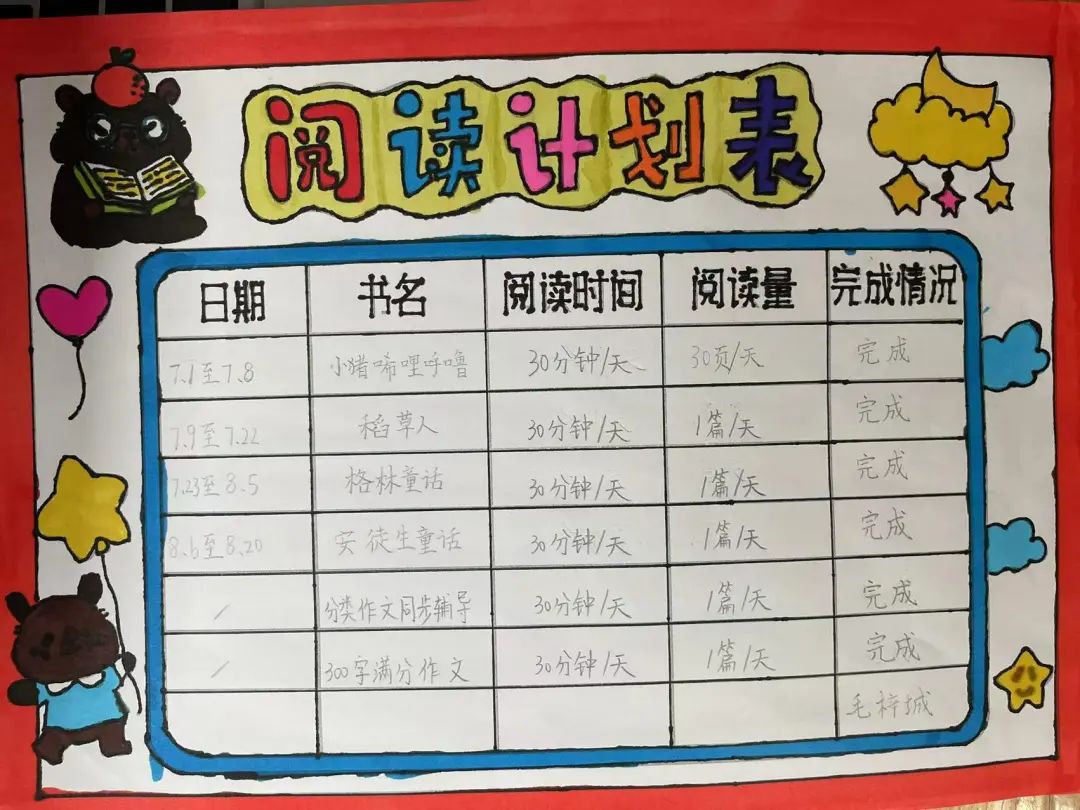 阅读计划表
日期 书名 阅读时间 阅读量 完成情况
7.1至7.8 小猪唏哩呼噜 30分钟/天 30页/天 完成
7.9至7.22 稻草人 30分钟/天 1篇/天 完成
7.23至8.5 格林童话 30分钟/天 1篇/天 完成
8.6至8.20 安徒生童话 30分钟/天 1篇/天 完成
/ 分类作文同步辅导 30分钟/天 1篇/天 完成
/ 300字满分作文 30分钟/天 1篇/天 完成
毛梓城